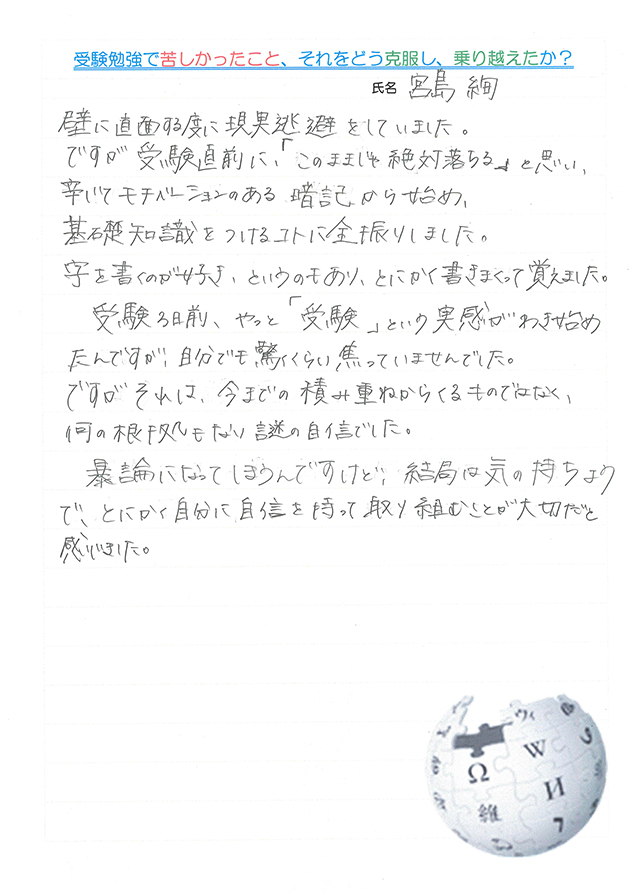 受験勉強で苦しかったこと、それをどう克服し、乗り越えたか？
氏名 宮島 絢
壁に直面する度に現実逃避をしていました。
ですが受験直前に、「このままじゃ絶対落ちる」と思い、
辛いてモチベーションのある暗記から始め、
基礎知識をつけるコトに全振りしました。
字を書くのが好き、というのもあり、とにかく書きまくって覚えました。
受験3日前、やっと「受験」という実感がわき始め
たんですが、自分でも驚くくらい焦っていませんでした。
ですがそれは、今までの積み重ねからくるものではなく、
何の根拠もない謎の自信でした。
暴論になってしまうんですけど、結局は気の持ちよう
で、とにかく自分に自信を持って取り組むことが大切だと
感じました。
ウィ
W
Ω
И
維